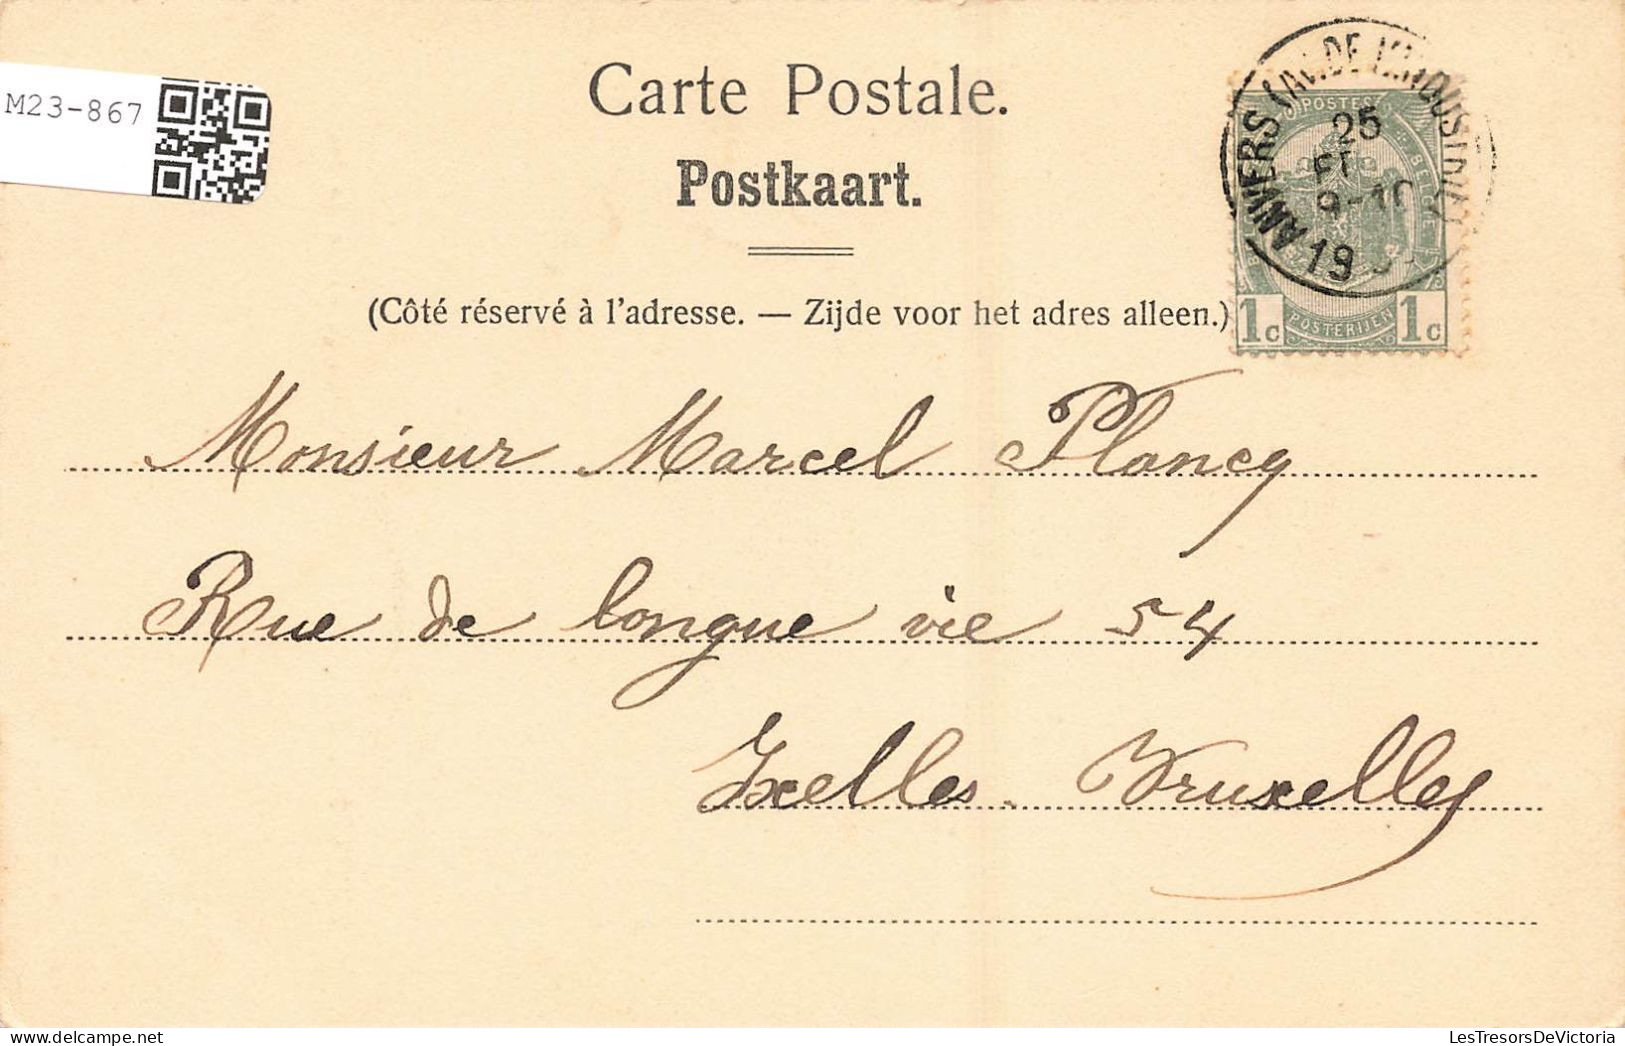 M23-867
Carte Postale.
Postkaart.
(Côté réservé à l'adresse. — Zijde voor het adres alleen.)
ANVERS (AV. DE L'INDUSTRIE)
25
9-10
19
POSTES
BELGIQUE
1c POSTERIJEN 1c
Monsieur Marcel Plancq
Rue de longue vie 54
Ixelles. Bruxelles
delcampe.net
LesTresorsDeVictoria